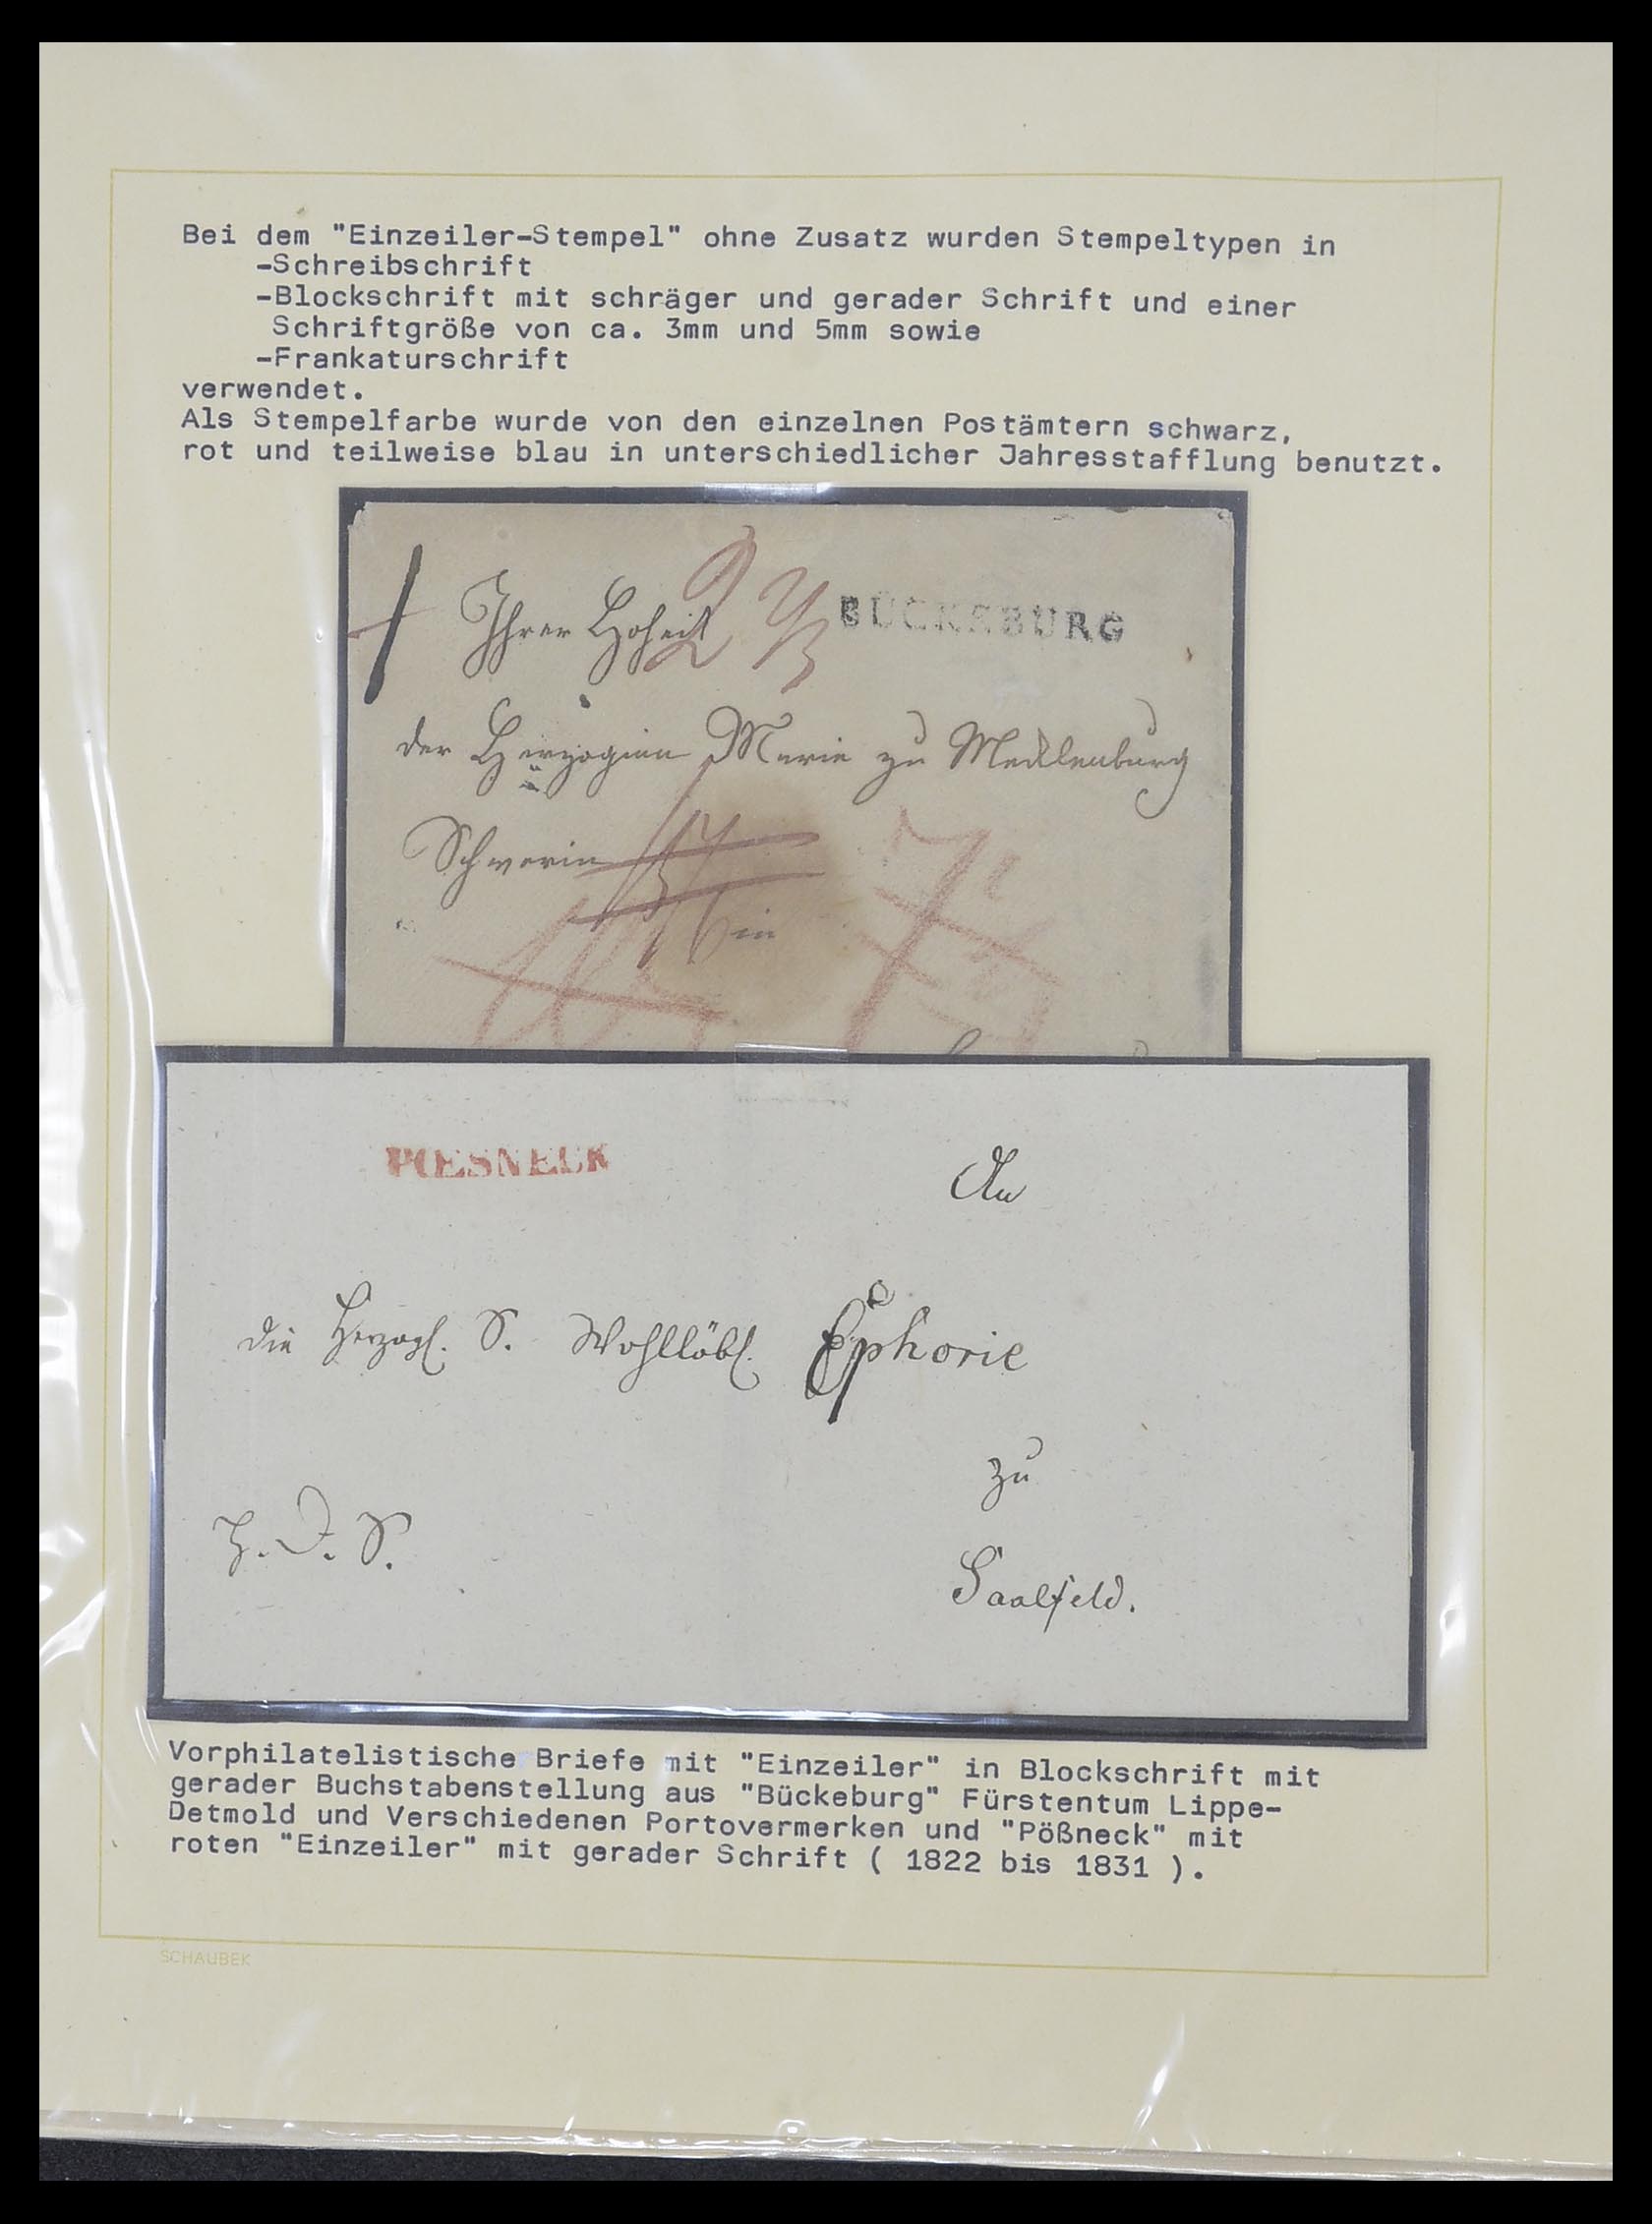 Bei dem "Einzeiler-Stempel" ohne Zusatz wurden Stempeltypen in
-Schreibschrift
-Blockschrift mit schräger und gerader Schrift und einer
Schriftgröße von ca. 3mm und 5mm sowie
-Frankaturschrift
verwendet.
Als Stempelfarbe wurde von den einzelnen Postämtern schwarz,
rot und teilweise blau in unterschiedlicher Jahresstafflung benutzt.
Ihrer Hoheit
BÜCKEBURG
der Herzoginn Marie zu Mecklenburg
Schwerin
in
POESNECK
An
die Herzogl. S. Wohllöbl. Ephorie
zu
H. D. S.
Saalfeld.
Vorphilatelistische Briefe mit "Einzeiler" in Blockschrift mit
gerader Buchstabenstellung aus "Bückeburg" Fürstentum Lippe-
Detmold und Verschiedenen Portovermerken und "Pößneck" mit
roten "Einzeiler" mit gerader Schrift ( 1822 bis 1831 ).
SCHAUBEK